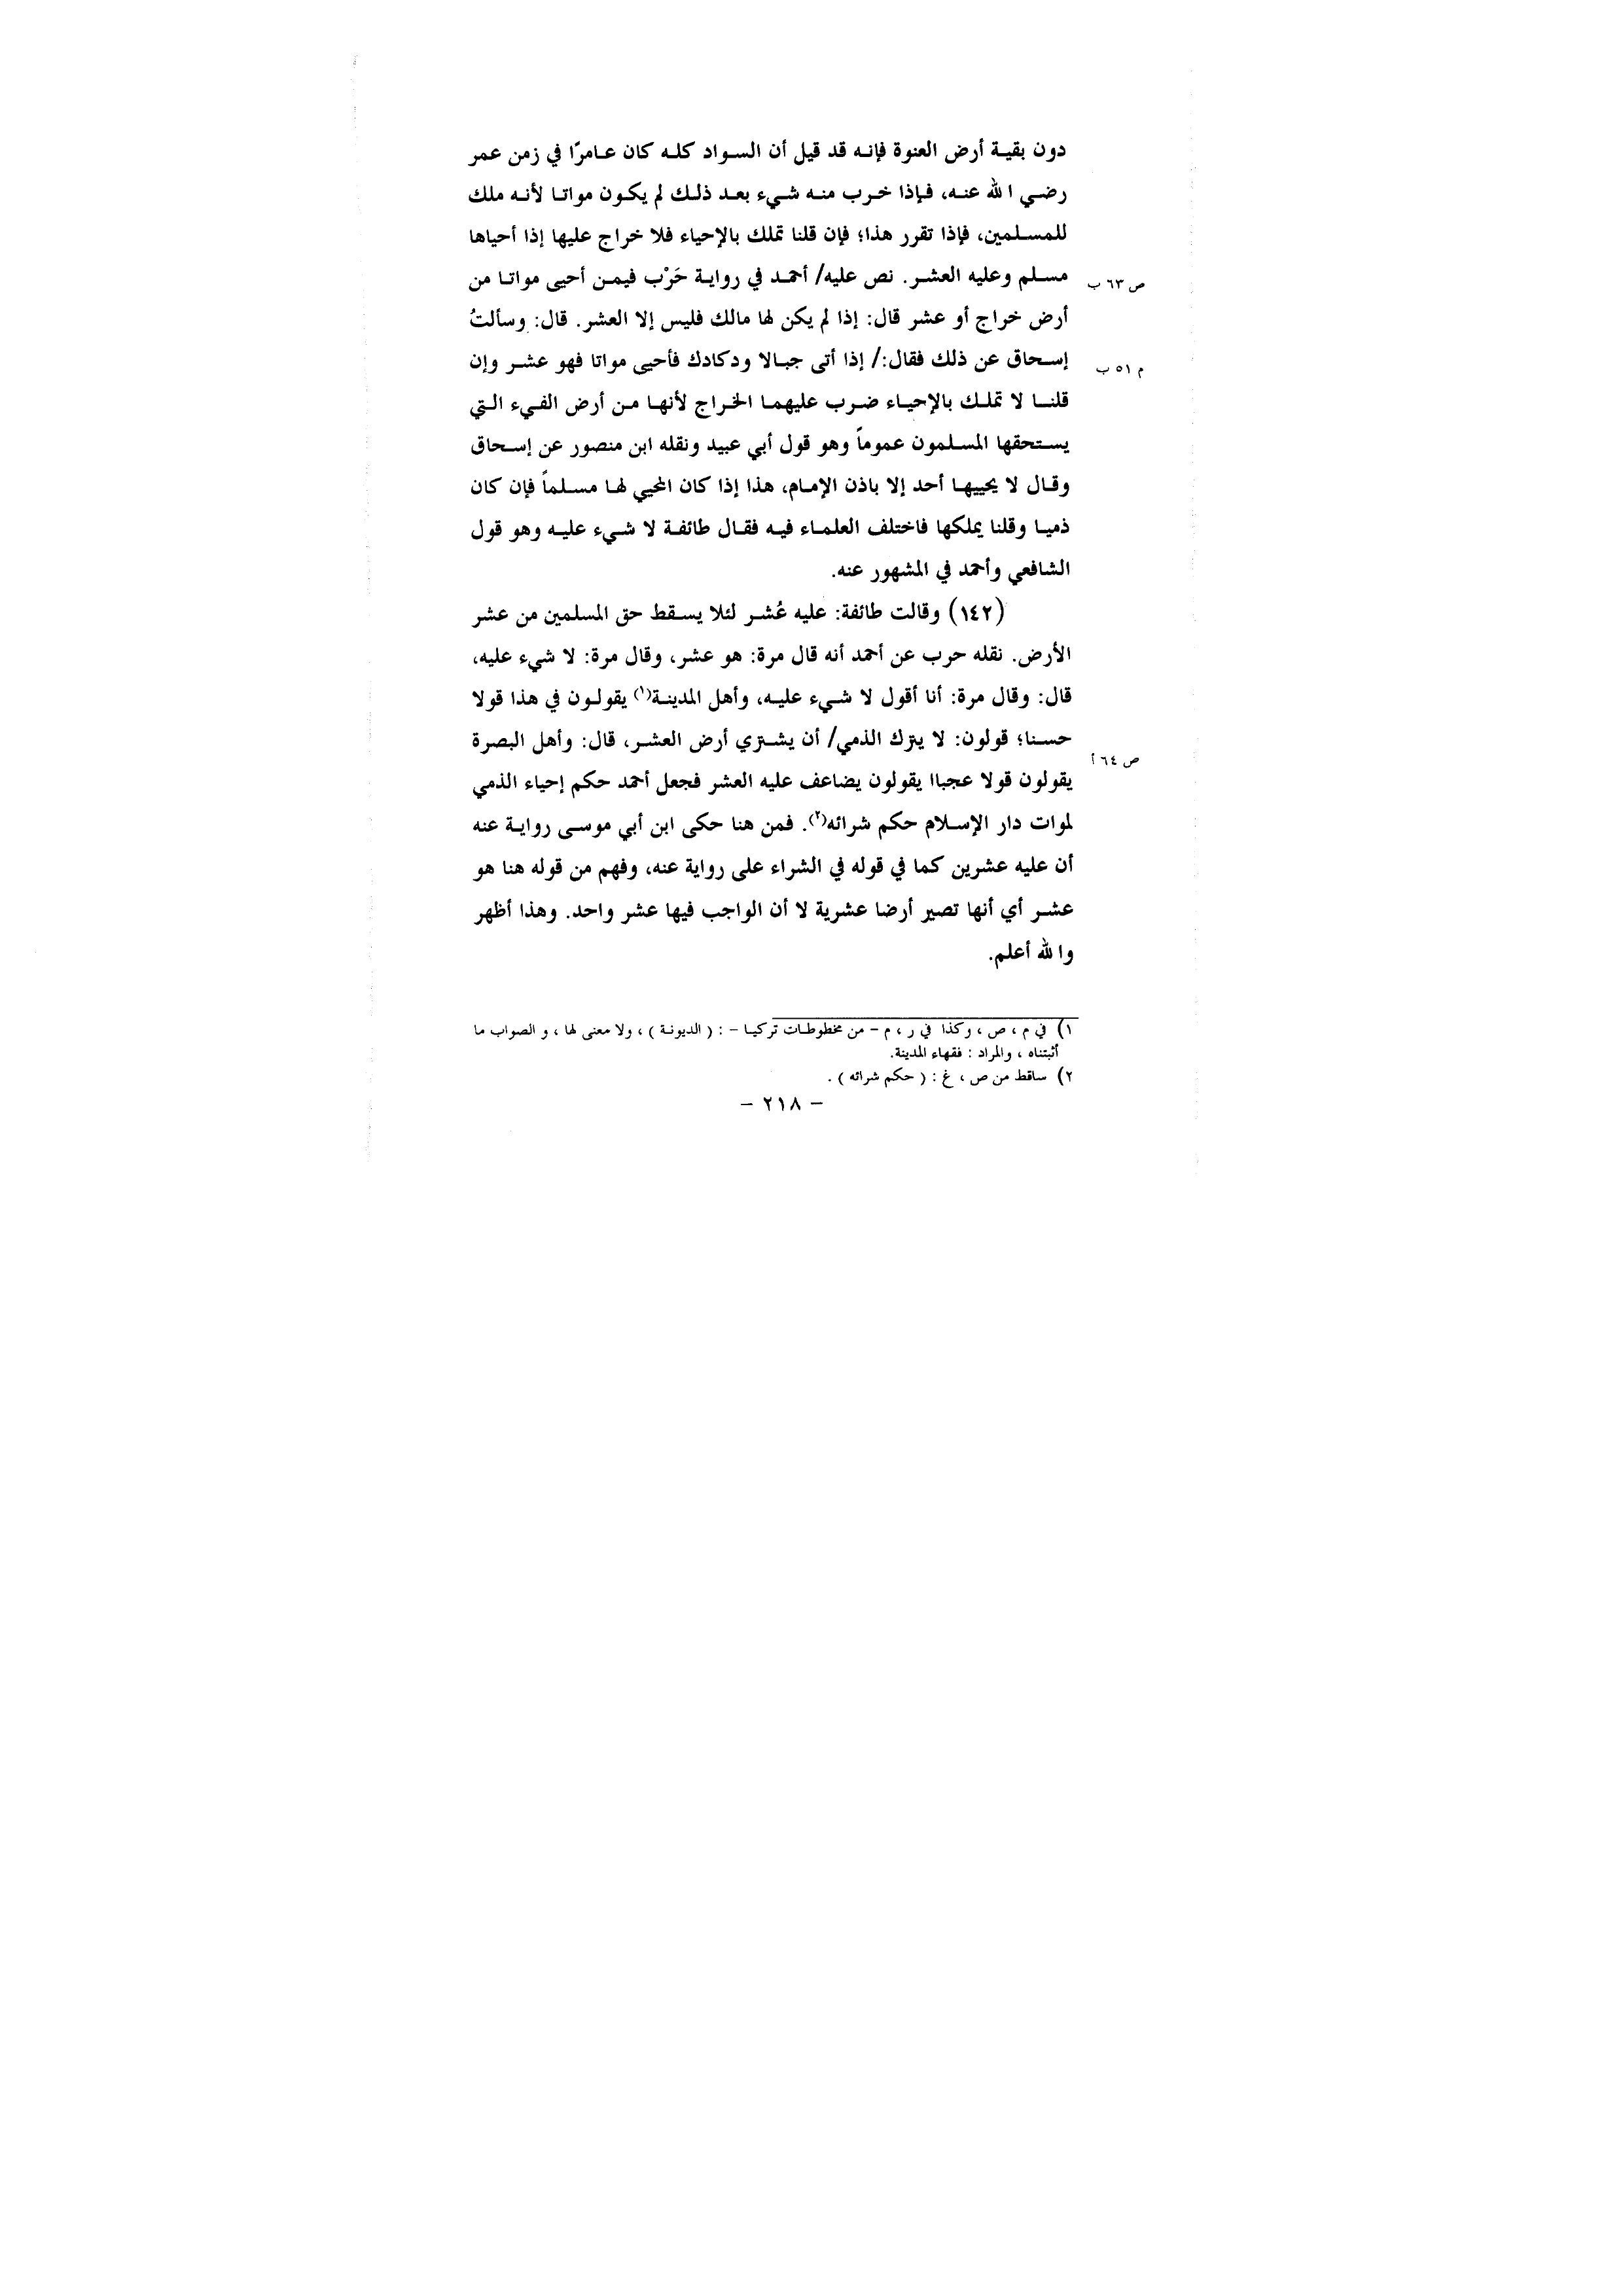 دون بقية أرض العنوة فإنه قد قيل أن السواد كله كان عامرًا في زمن عمر
رضي الله عنه، فإذا خرب منه شيء بعد ذلك لم يكون مواتا لأنه ملك
للمسلمين، فإذا تقرر هذا؛ فإن قلنا تملك بالإحياء فلا خراج عليها إذا أحياها
مسلم وعليه العشر. نص عليه/ أحمد في رواية حَرْب فيمن أحيى مواتا من
ص ٦٣ ب
أرض خراج أو عشر قال: إذا لم يكن لها مالك فليس إلا العشر. قال: وسألتُ
إسحاق عن ذلك فقال:/ إذا أتى جبالا ودكادك فأحيى مواتا فهو عشر وإن
م ٥١ ب
قلنا لا تملك بالإحياء ضرب عليهما الخراج لأنها من أرض الفيء التي
يستحقها المسلمون عموماً وهو قول أبي عبيد ونقله ابن منصور عن إسحاق
وقال لا يحييها أحد إلا باذن الإمام، هذا إذا كان المحيي لها مسلماً فإن كان
ذميا وقلنا يملكها فاختلف العلماء فيه فقال طائفة لا شيء عليه وهو قول
الشافعي وأحمد في المشهور عنه.
(١٤٢) وقالت طائفة: عليه عُشر لئلا يسقط حق المسلمين من عشر
الأرض. نقله حرب عن أحمد أنه قال مرة: هو عشر، وقال مرة: لا شيء عليه،
قال: وقال مرة: أنا أقول لا شيء عليه، وأهل المدينة(١) يقولون في هذا قولا
حسنا؛ قولون: لا يترك الذمي/ أن يشتري أرض العشر، قال: وأهل البصرة
ص ٦٤ أ
يقولون قولا عجباا يقولون يضاعف عليه العشر فجعل أحمد حكم إحياء الذمي
لموات دار الإسلام حكم شرائه(٢). فمن هنا حكى ابن أبي موسى رواية عنه
أن عليه عشرين كما في قوله في الشراء على رواية عنه، وفهم من قوله هنا هو
عشر أي أنها تصير أرضا عشرية لا أن الواجب فيها عشر واحد. وهذا أظهر
والله أعلم.
١) في م ، ص ، وكذا في ر ، م – من مخطوطات تركيا – : ( الديونة ) ، ولا معنى لها ، و الصواب ما
أثبتناه ، والمراد : فقهاء المدينة.
٢) ساقط من ص ، غ : ( حكم شرائه ) .
– ٢١٨ –